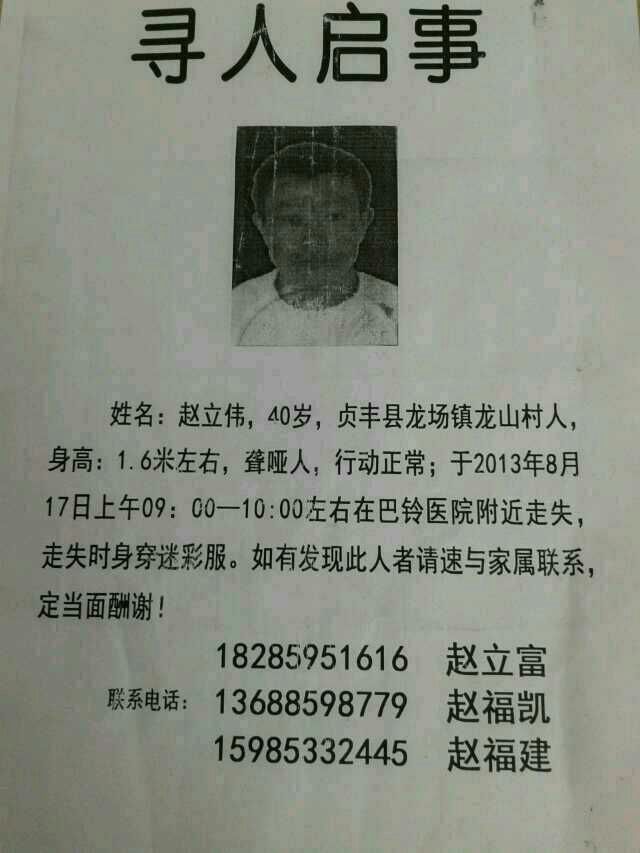 寻人启事
姓名：赵立伟，40岁，贞丰县龙场镇龙山村人，
身高：1.6米左右，聋哑人，行动正常；于2013年8月
17日上午09：00—10:00左右在巴铃医院附近走失，
走失时身穿迷彩服。如有发现此人者请速与家属联系，
定当面酬谢！
18285951616 赵立富
联系电话：13688598779 赵福凯
15985332445 赵福建